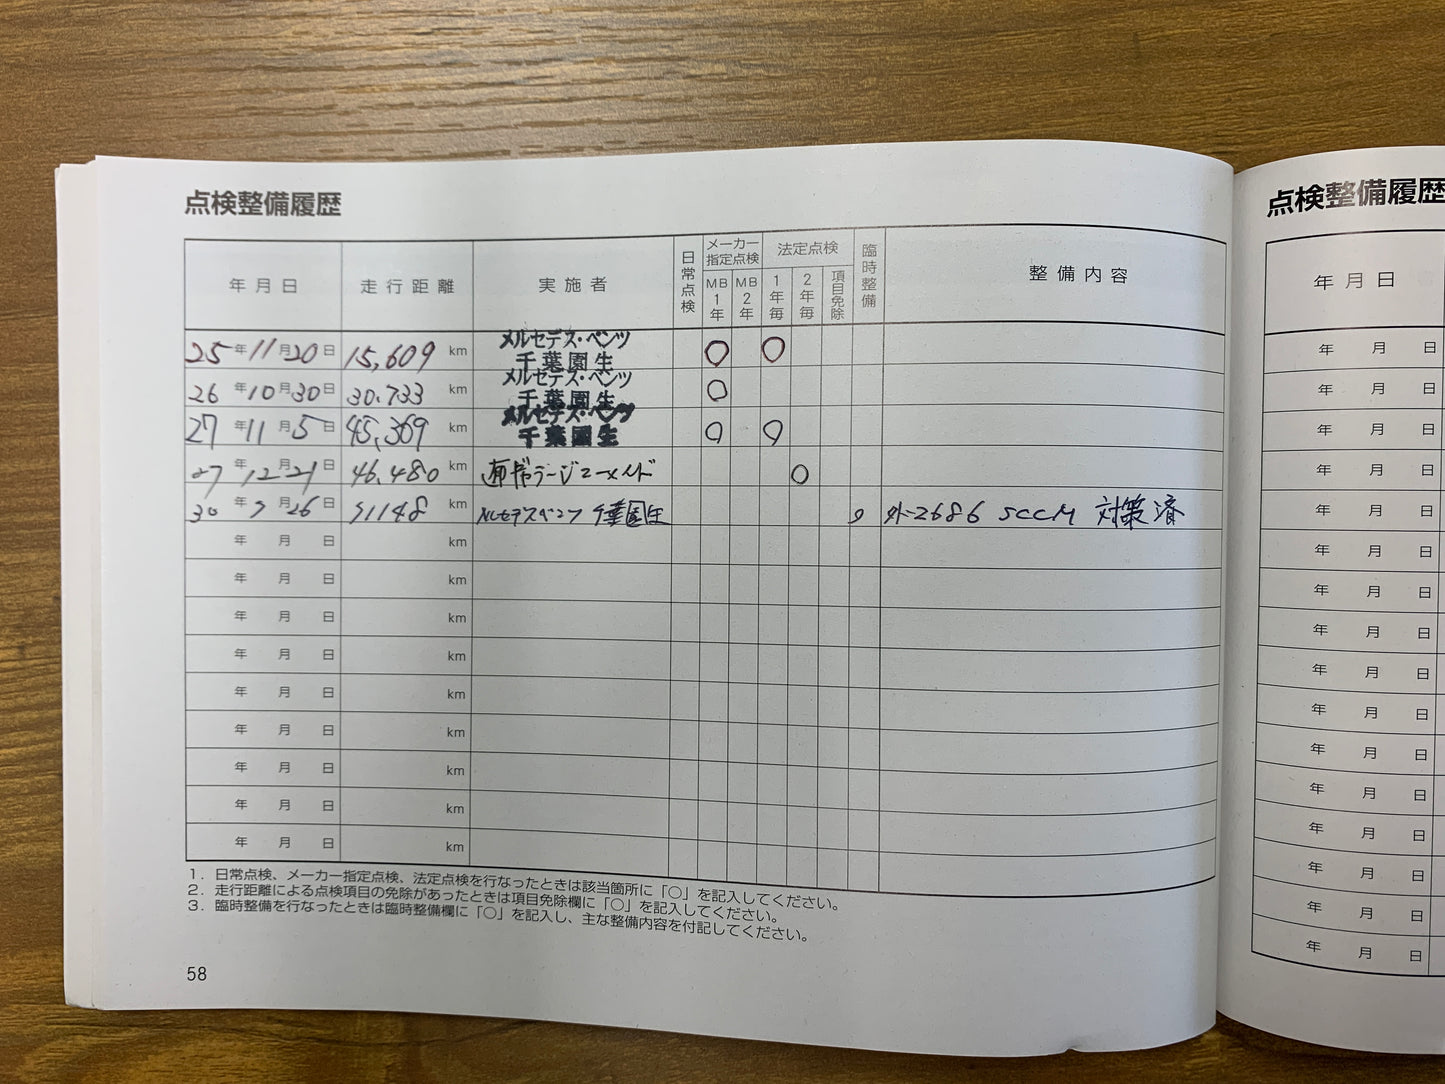 点検整備履歴
年月日 走行距離 実施者 日常点検 メーカー指定点検 MB1年 MB2年 法定点検 1年毎 2年毎 項目免除 臨時整備 整備内容
25年11月20日 15,609km メルセデス・ベンツ 千葉園生 ○ ○
26年10月30日 30,733km メルセデス・ベンツ 千葉園生 ○
27年11月5日 45,369km メルセデス・ベンツ 千葉園生 ○ ○
27年12月21日 46,480km ○
30年7月26日 51148km メルセデスベンツ 千葉園生 外-2686 SCCM 対策済
年 月 日 km
年 月 日 km
年 月 日 km
年 月 日 km
年 月 日 km
年 月 日 km
年 月 日 km
年 月 日 km
年 月 日 km
1. 日常点検、メーカー指定点検、法定点検を行なったときは該当箇所に「○」を記入してください。
2. 走行距離による点検項目の免除があったときは項目免除欄に「○」を記入してください。
3. 臨時整備を行なったときは臨時整備欄に「○」を記入し、主な整備内容を付記してください。
58
点検整備履歴
年月日
年 月 日
年 月 日
年 月 日
年 月 日
年 月 日
年 月 日
年 月 日
年 月 日
年 月 日
年 月 日
年 月 日
年 月 日
年 月 日
年 月 日
年 月 日
年 月 日